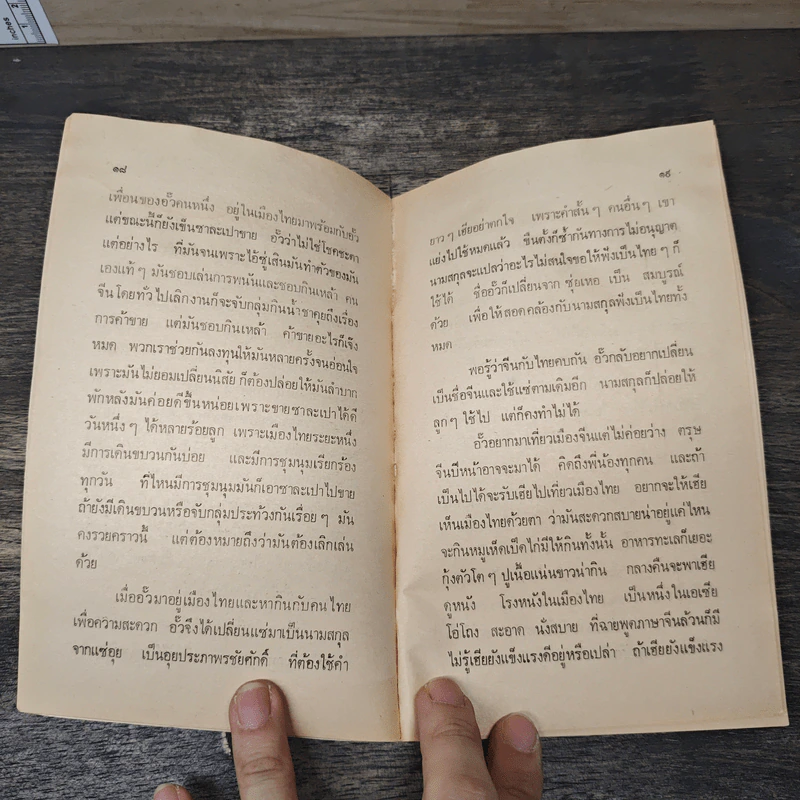 inches
1
2
๑๘
เพื่อนของอั๊วคนหนึ่ง อยู่ในเมืองไทยมาพร้อมกับอั๊ว
แต่ขณะนี้ก็ยังเข็นซาละเปาขาย อั๊วว่าไม่ใช่โชคชะตา
แต่อย่างไร ที่มันจนเพราะไอ้ซู่เสินมันทำตัวของมัน
เองแท้ๆ มันชอบเล่นการพนันและชอบกินเหล้า คน
จีนโดยทั่วไปเลิกงานก็จะจับกลุ่มกินน้ำชาคุยถึงเรื่อง
การค้าขาย แต่มันชอบกินเหล้า ค้าขายอะไรก็เจ๊ง
หมด พวกเราช่วยกันลงทุนให้มันหลายครั้งจนอ่อนใจ
เพราะมันไม่ยอมเปลี่ยนนิสัย ก็ต้องปล่อยให้มันลำบาก
พักหลังมันค่อยดีขึ้นหน่อยเพราะขายซาละเปาได้ดี
วันหนึ่งๆ ได้หลายร้อยลูก เพราะเมืองไทยระยะหนึ่ง
มีการเดินขบวนกันบ่อย และมีการชุมนุมเรียกร้อง
ทุกวัน ที่ไหนมีการชุมนุมมันก็เอาซาละเปาไปขาย
ถ้ายังมีเดินขบวนหรือจับกลุ่มประท้วงกันเรื่อยๆ มัน
คงรวยคราวนี้ แต่ต้องหมายถึงว่ามันต้องเลิกเล่น
ด้วย
เมื่ออั๊วมาอยู่เมืองไทยและหากินกับคนไทย
เพื่อความสะดวก อั๊วจึงได้เปลี่ยนแซ่มาเป็นนามสกุล
จากแซ่อุย เป็นอุยประภาพรชัยศักดิ์ ที่ต้องใช้คำ
๑๙
ยาวๆ เฮียอย่าตกใจ เพราะคำสั้นๆ คนอื่นๆ เขา
แย่งไปใช้หมดแล้ว ขืนตั้งก็ซ้ำกันทางการไม่อนุญาต
นามสกุลจะแปลว่าอะไรไม่สนใจขอให้ฟังเป็นไทยๆ ก็
ใช้ได้ ชื่ออั๊วก็เปลี่ยนจาก ซุ่อเหอ เป็น สมบูรณ์
ด้วย เพื่อให้สอดคล้องกับนามสกุลฟังเป็นไทยทั้ง
หมด
พอรู้ว่าจีนกับไทยคบกัน อั๊วกลับอยากเปลี่ยน
เป็นชื่อจีนและใช้แซ่ตามเดิมอีก นามสกุลก็ปล่อยให้
ลูกๆ ใช้ไป แต่ก็คงทำไม่ได้
อั๊วอยากมาเที่ยวเมืองจีนแต่ไม่ค่อยว่าง ตรุษ
จีนปีหน้าอาจจะมาได้ คิดถึงพี่น้องทุกคน และถ้า
เป็นไปได้จะรับเฮียไปเที่ยวเมืองไทย อยากจะให้เฮีย
เห็นเมืองไทยด้วยตา ว่ามันสะดวกสบายน่าอยู่แค่ไหน
จะกินหมูเห็ดเป็ดไก่มีให้กินทั้งนั้น อาหารทะเลก็เยอะ
กุ้งตัวโตๆ ปูเนื้อแน่นขาวน่ากิน กลางคืนจะพาเฮีย
ดูหนัง โรงหนังในเมืองไทย เป็นหนึ่งในเอเซีย
โอ่โถง สะอาด นั่งสบาย ที่ฉายพูดภาษาจีนล้วนก็มี
ไม่รู้เฮียยังแข็งแรงดีอยู่หรือเปล่า ถ้าเฮียยังแข็งแรง